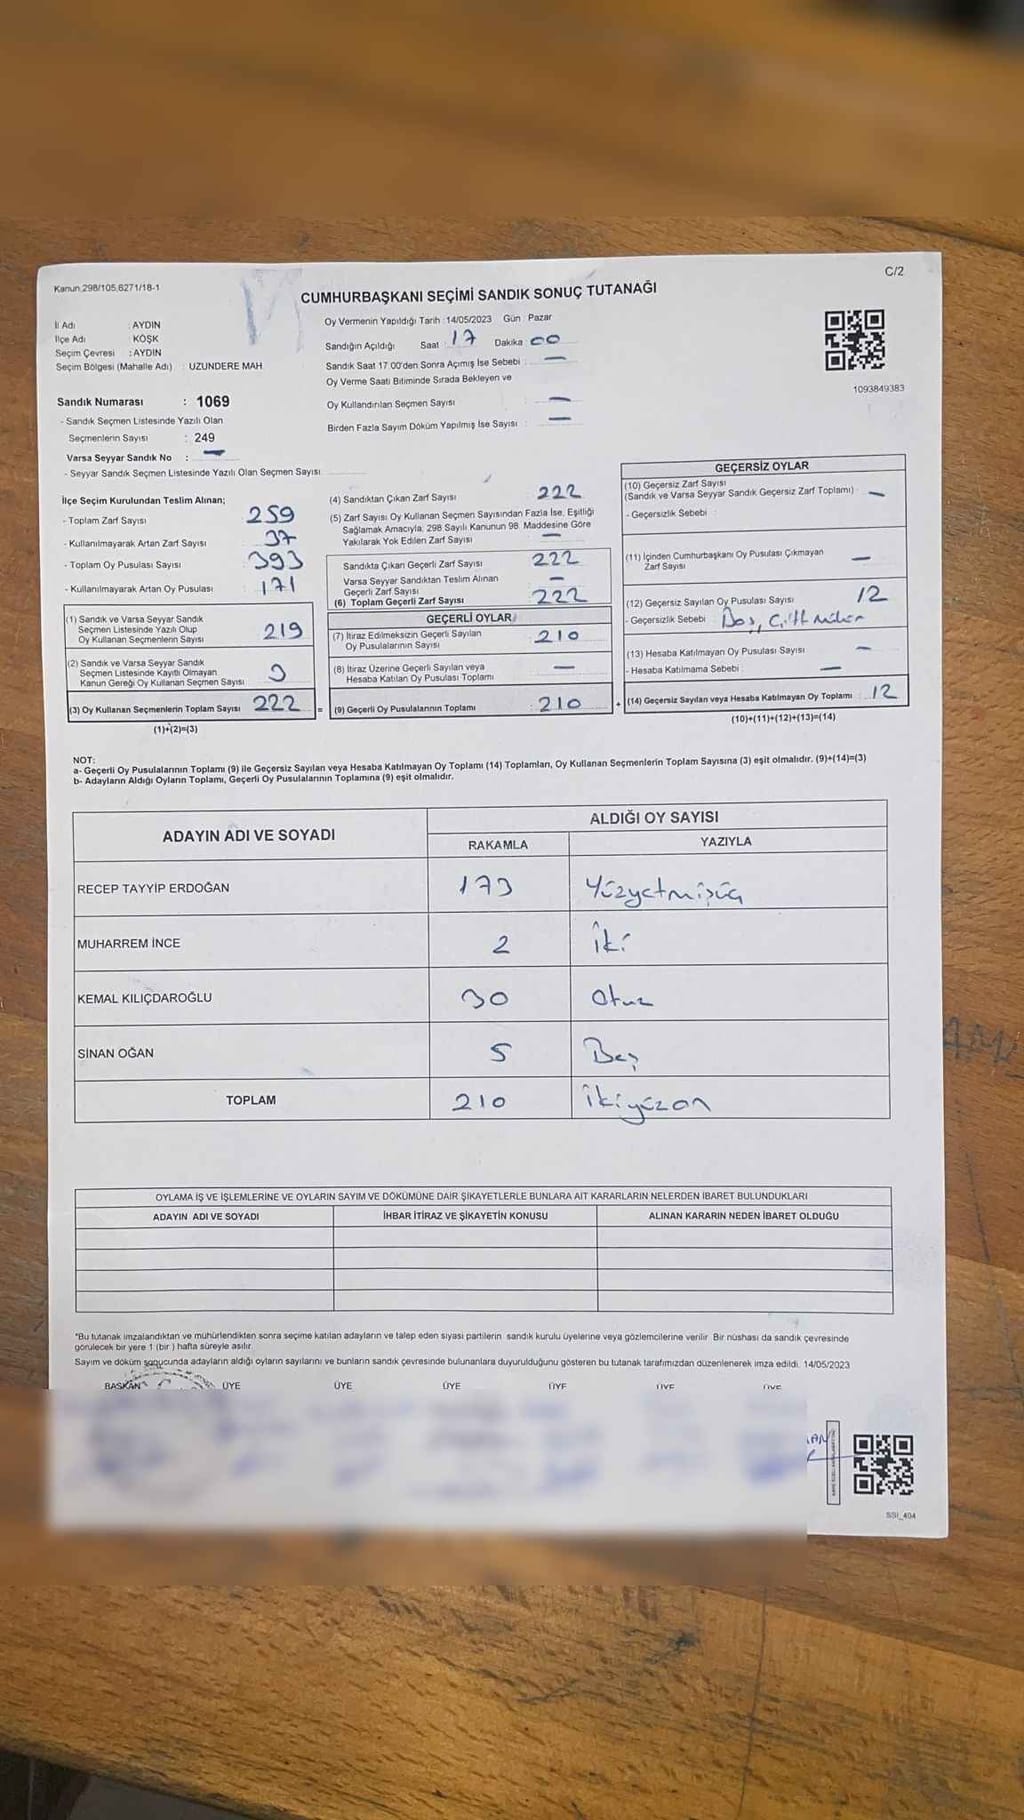 C/2
Kanun 298/105,6271/18-1
CUMHURBAŞKANI SEÇİMİ SANDIK SONUÇ TUTANAĞI
İl Adı : AYDIN
İlçe Adı : KÖŞK
Seçim Çevresi : AYDIN
Seçim Bölgesi (Mahalle Adı) : UZUNDERE MAH.
Oy Vermenin Yapıldığı Tarih :14/05/2023 Gün : Pazar
Sandığın Açıldığı Saat : 17 Dakika : 00
Sandık Saat 17.00'den Sonra Açımış İse Sebebi : —
Oy Verme Saati Bitiminde Sırada Bekleyen ve
Oy Kullandırılan Seçmen Sayısı : —
Birden Fazla Sayım Döküm Yapılmış İse Sayısı : —
1093849383
Sandık Numarası : 1069
- Sandık Seçmen Listesinde Yazılı Olan
Seçmenlerin Sayısı : 249
Varsa Seyyar Sandık No : —
- Seyyar Sandık Seçmen Listesinde Yazılı Olan Seçmen Sayısı
İlçe Seçim Kurulundan Teslim Alınan;
- Toplam Zarf Sayısı 259
- Kullanılmayarak Artan Zarf Sayısı 37
- Toplam Oy Pusulası Sayısı 393
- Kullanılmayarak Artan Oy Pusulası 171
(1) Sandık ve Varsa Seyyar Sandık
Seçmen Listesinde Yazılı Olup
Oy Kullanan Seçmenlerin Sayısı 219
(2) Sandık ve Varsa Seyyar Sandık
Seçmen Listesinde Kayıtlı Olmayan
Kanun Gereği Oy Kullanan Seçmen Sayısı 3
(3) Oy Kullanan Seçmenlerin Toplam Sayısı 222 =
(1)+(2)=(3)
(4) Sandıktan Çıkan Zarf Sayısı 222
(5) Zarf Sayısı Oy Kullanan Seçmen Sayısından Fazla İse, Eşitliği
Sağlamak Amacıyla; 298 Sayılı Kanunun 98. Maddesine Göre
Yakılarak Yok Edilen Zarf Sayısı —
Sandıkta Çıkan Geçerli Zarf Sayısı 222
Varsa Seyyar Sandıktan Teslim Alınan
Geçerli Zarf Sayısı —
(6) Toplam Geçerli Zarf Sayısı 222
GEÇERLİ OYLAR
(7) İtiraz Edilmeksizin Geçerli Sayılan
Oy Pusulalarının Sayısı 210
(8) İtiraz Üzerine Geçerli Sayılan veya
Hesaba Katılan Oy Pusulası Toplamı —
(9) Geçerli Oy Pusulalarının Toplamı 210 +
GEÇERSİZ OYLAR
(10) Geçersiz Zarf Sayısı
(Sandık ve Varsa Seyyar Sandık Geçersiz Zarf Toplamı) : —
- Geçersizlik Sebebi :
(11) İçinden Cumhurbaşkanı Oy Pusulası Çıkmayan
Zarf Sayısı —
(12) Geçersiz Sayılan Oy Pusulası Sayısı 12
- Geçersizlik Sebebi : Boş, Çift mühür
(13) Hesaba Katılmayan Oy Pusulası Sayısı —
- Hesaba Katılmama Sebebi : —
(14) Geçersiz Sayılan veya Hesaba Katılmayan Oy Toplamı : 12
(10)+(11)+(12)+(13)=(14)
NOT:
a- Geçerli Oy Pusulalarının Toplamı (9) ile Geçersiz Sayılan veya Hesaba Katılmayan Oy Toplamı (14) Toplamları, Oy Kullanan Seçmenlerin Toplam Sayısına (3) eşit olmalıdır. (9)+(14)=(3)
b- Adayların Aldığı Oyların Toplamı, Geçerli Oy Pusulalarının Toplamına (9) eşit olmalıdır.
ADAYIN ADI VE SOYADI ALDIĞI OY SAYISI
RAKAMLA YAZIYLA
RECEP TAYYİP ERDOĞAN 173 Yüzyetmişüç
MUHARREM İNCE 2 İki
KEMAL KILIÇDAROĞLU 30 Otuz
SİNAN OĞAN 5 Beş
TOPLAM 210 İkiyüzon
OYLAMA İŞ VE İŞLEMLERİNE VE OYLARIN SAYIM VE DÖKÜMÜNE DAİR ŞİKAYETLERLE BUNLARA AİT KARARLARIN NELERDEN İBARET BULUNDUKLARI
ADAYIN ADI VE SOYADI İHBAR İTİRAZ VE ŞİKAYETİN KONUSU ALINAN KARARIN NEDEN İBARET OLDUĞU
*Bu tutanak imzalandıktan ve mühürlendikten sonra seçime katılan adayların ve talep eden siyasi partilerin sandık kurulu üyelerine veya gözlemcilerine verilir. Bir nüshası da sandık çevresinde
görülecek bir yere 1 (bir ) hafta süreyle asılır.
Sayım ve döküm sonucunda adayların aldığı oyların sayılarını ve bunların sandık çevresinde bulunanlara duyurulduğunu gösteren bu tutanak tarafımızdan düzenlenerek imza edildi. 14/05/2023
BAŞKAN ÜYE ÜYE ÜYE ÜYE ÜYE ÜYE
SSI_404